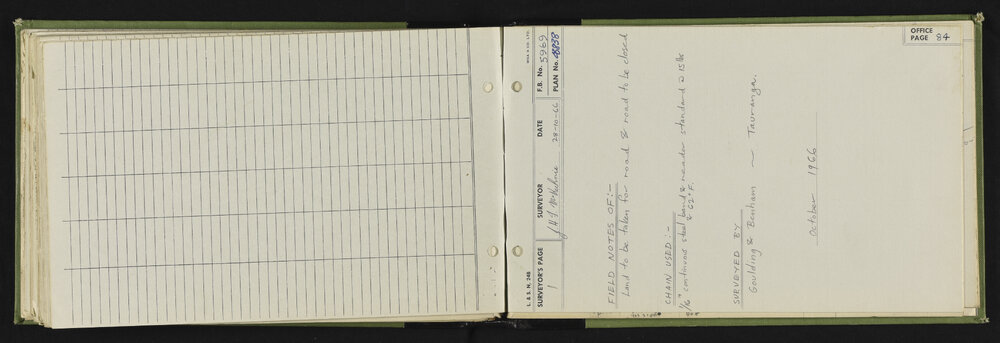 OFFICE
PAGE 84
L. & S. N. 24B
SURVEYOR'S PAGE
1
SURVEYOR
DATE
28-10-66
F.B. No. 5969
PLAN No.
FIELD NOTES OF:-
Land to be taken for road & road to be closed
CHAIN USED:-
1/16" continuous steel band & reader standard @ 15 lbs
& 62° F.
SURVEYED BY
Goulding & Benham ~ Tauranga.
October 1966